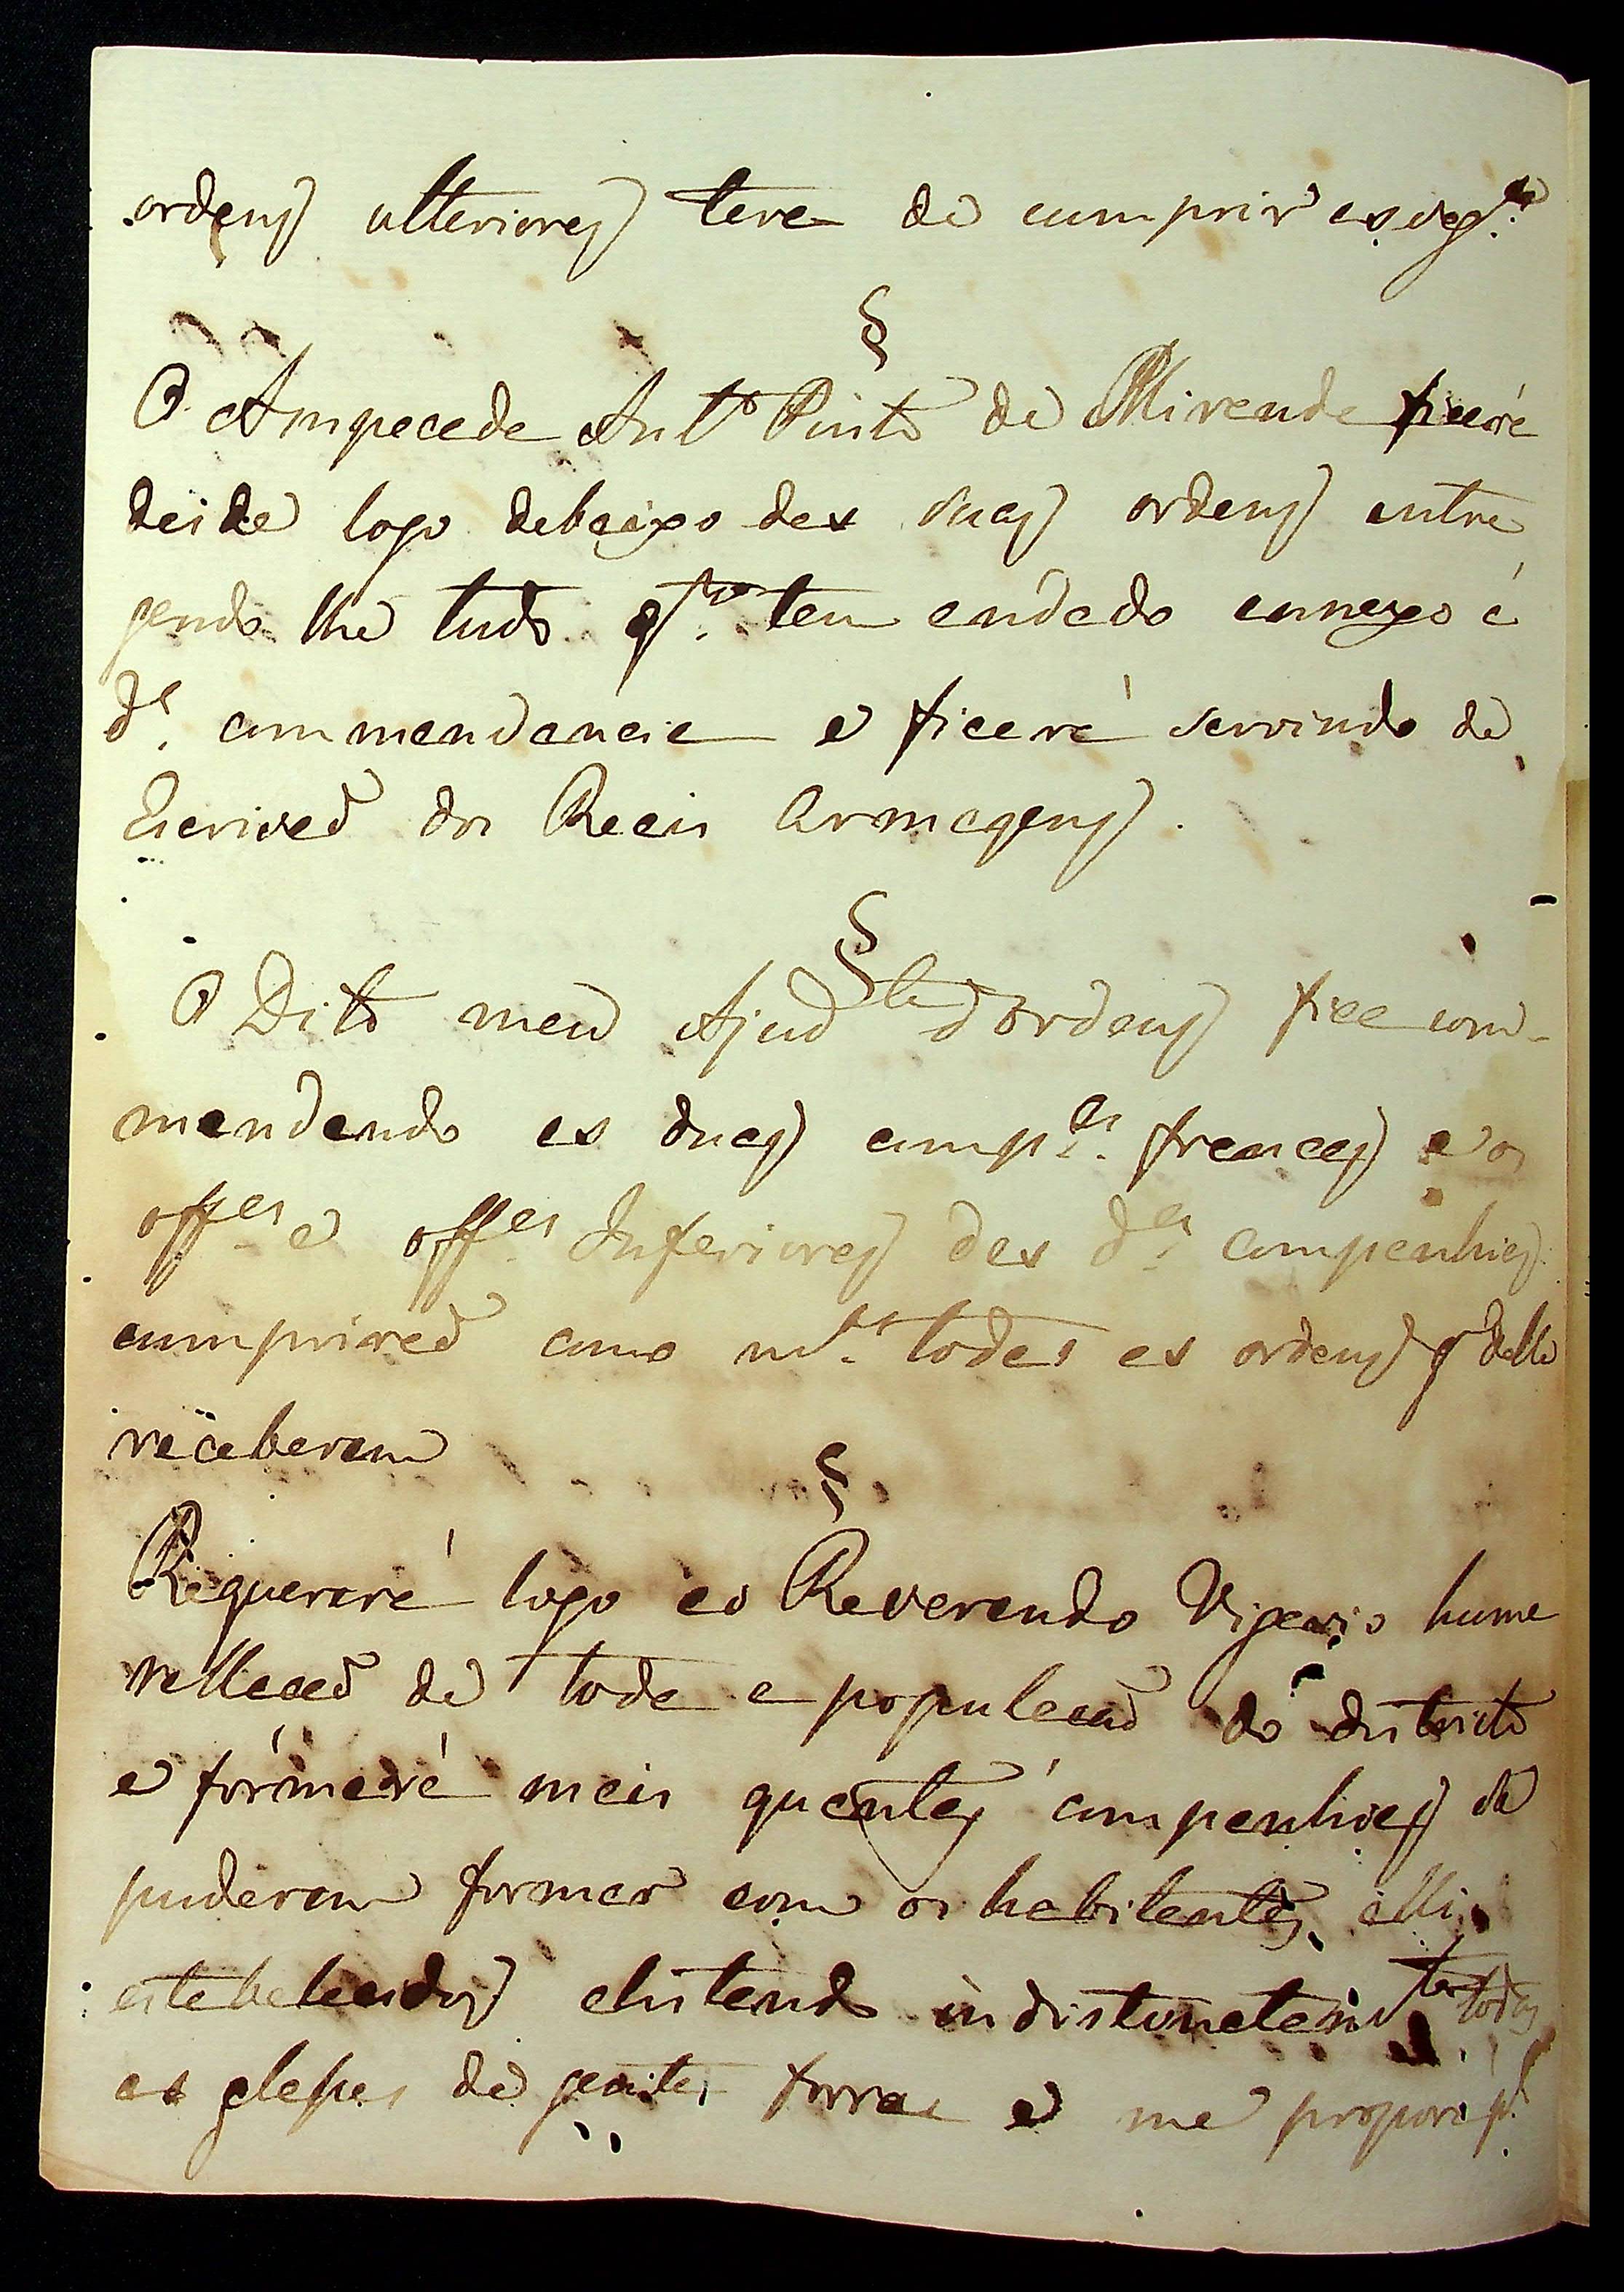 ordens ulteriores tera de cumprir as seg.tes
§
O Anspeçada Ant.º Pinto de Miranda ficará
desde logo debaixo das suas ordens entre
gando lhe tudo q.to tem andado annexo á
d.ª commandancia e ficará servindo de
Escrivaõ dos Reais Armagens.
§
O Dito meu Ajud.te d'ordens fica com-
mandando as duas comp.as francas e os
off.es e off.es Inferiores das d.as companhias
cumpriraõ como m.tas todas as ordens q' delle
receberem
§
Requerará logo ao Reverendo Vigario huma
rellaçaõ de toda a populacaõ do districto
e formará mais quantas companhias se
puderem formar com os habitantes alli
estabelecidos alistando indistinctam.te todas
as classes de gentes forras e me proporá p.ª